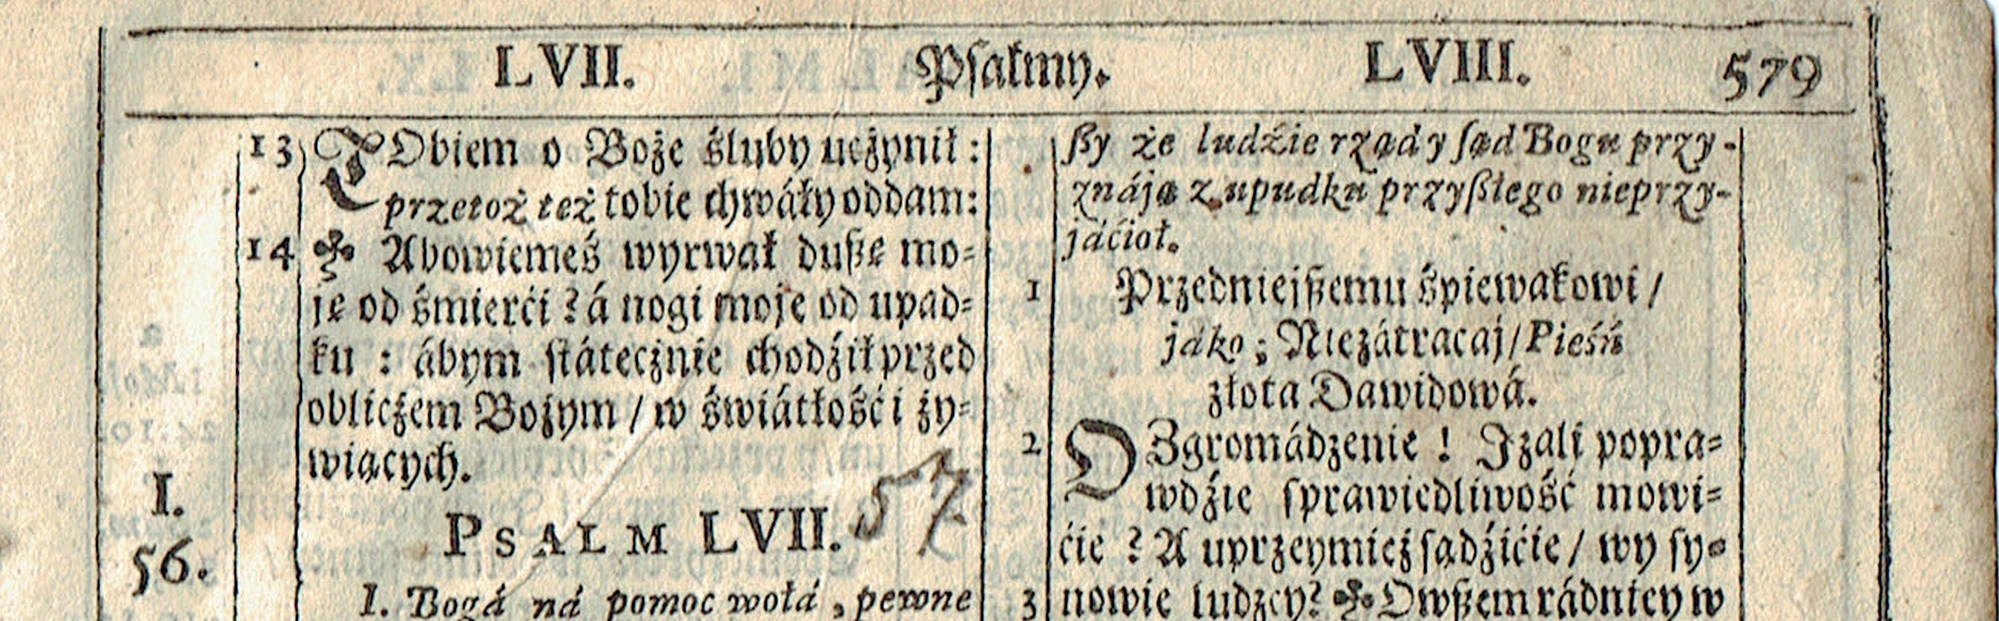 LVII. Psalmy. LVIII. 579
13 TObiem o Boże śluby uczynił:
przetoż też tobie chwáły oddam:
14 Abowiemeś wyrwał duszę mo-
ję od śmierći? á nogi moje od upad-
ku: ábym státecznie chodźił przed
obliczem Bożym / w świátłośći ży-
wiących.
I.
56.
PSALM LVII. 57
I. Bogá ná pomoc wołá, pewne
szy że ludźie rządy sąd Bogu przy-
znáją z upadku przyszłego nieprzy-
jáćioł.
1 Przedniejszemu śpiewakowi /
jáko; Niezátracaj / Pieśń
złota Dawidowá.
2 O Zgromádzenie! Izali popra-
wdźie sprawiedliwość mowi-
ćie? A uprzeymież sądźićie / wy sy-
3 nowie ludzcy? Owszem rádniey w